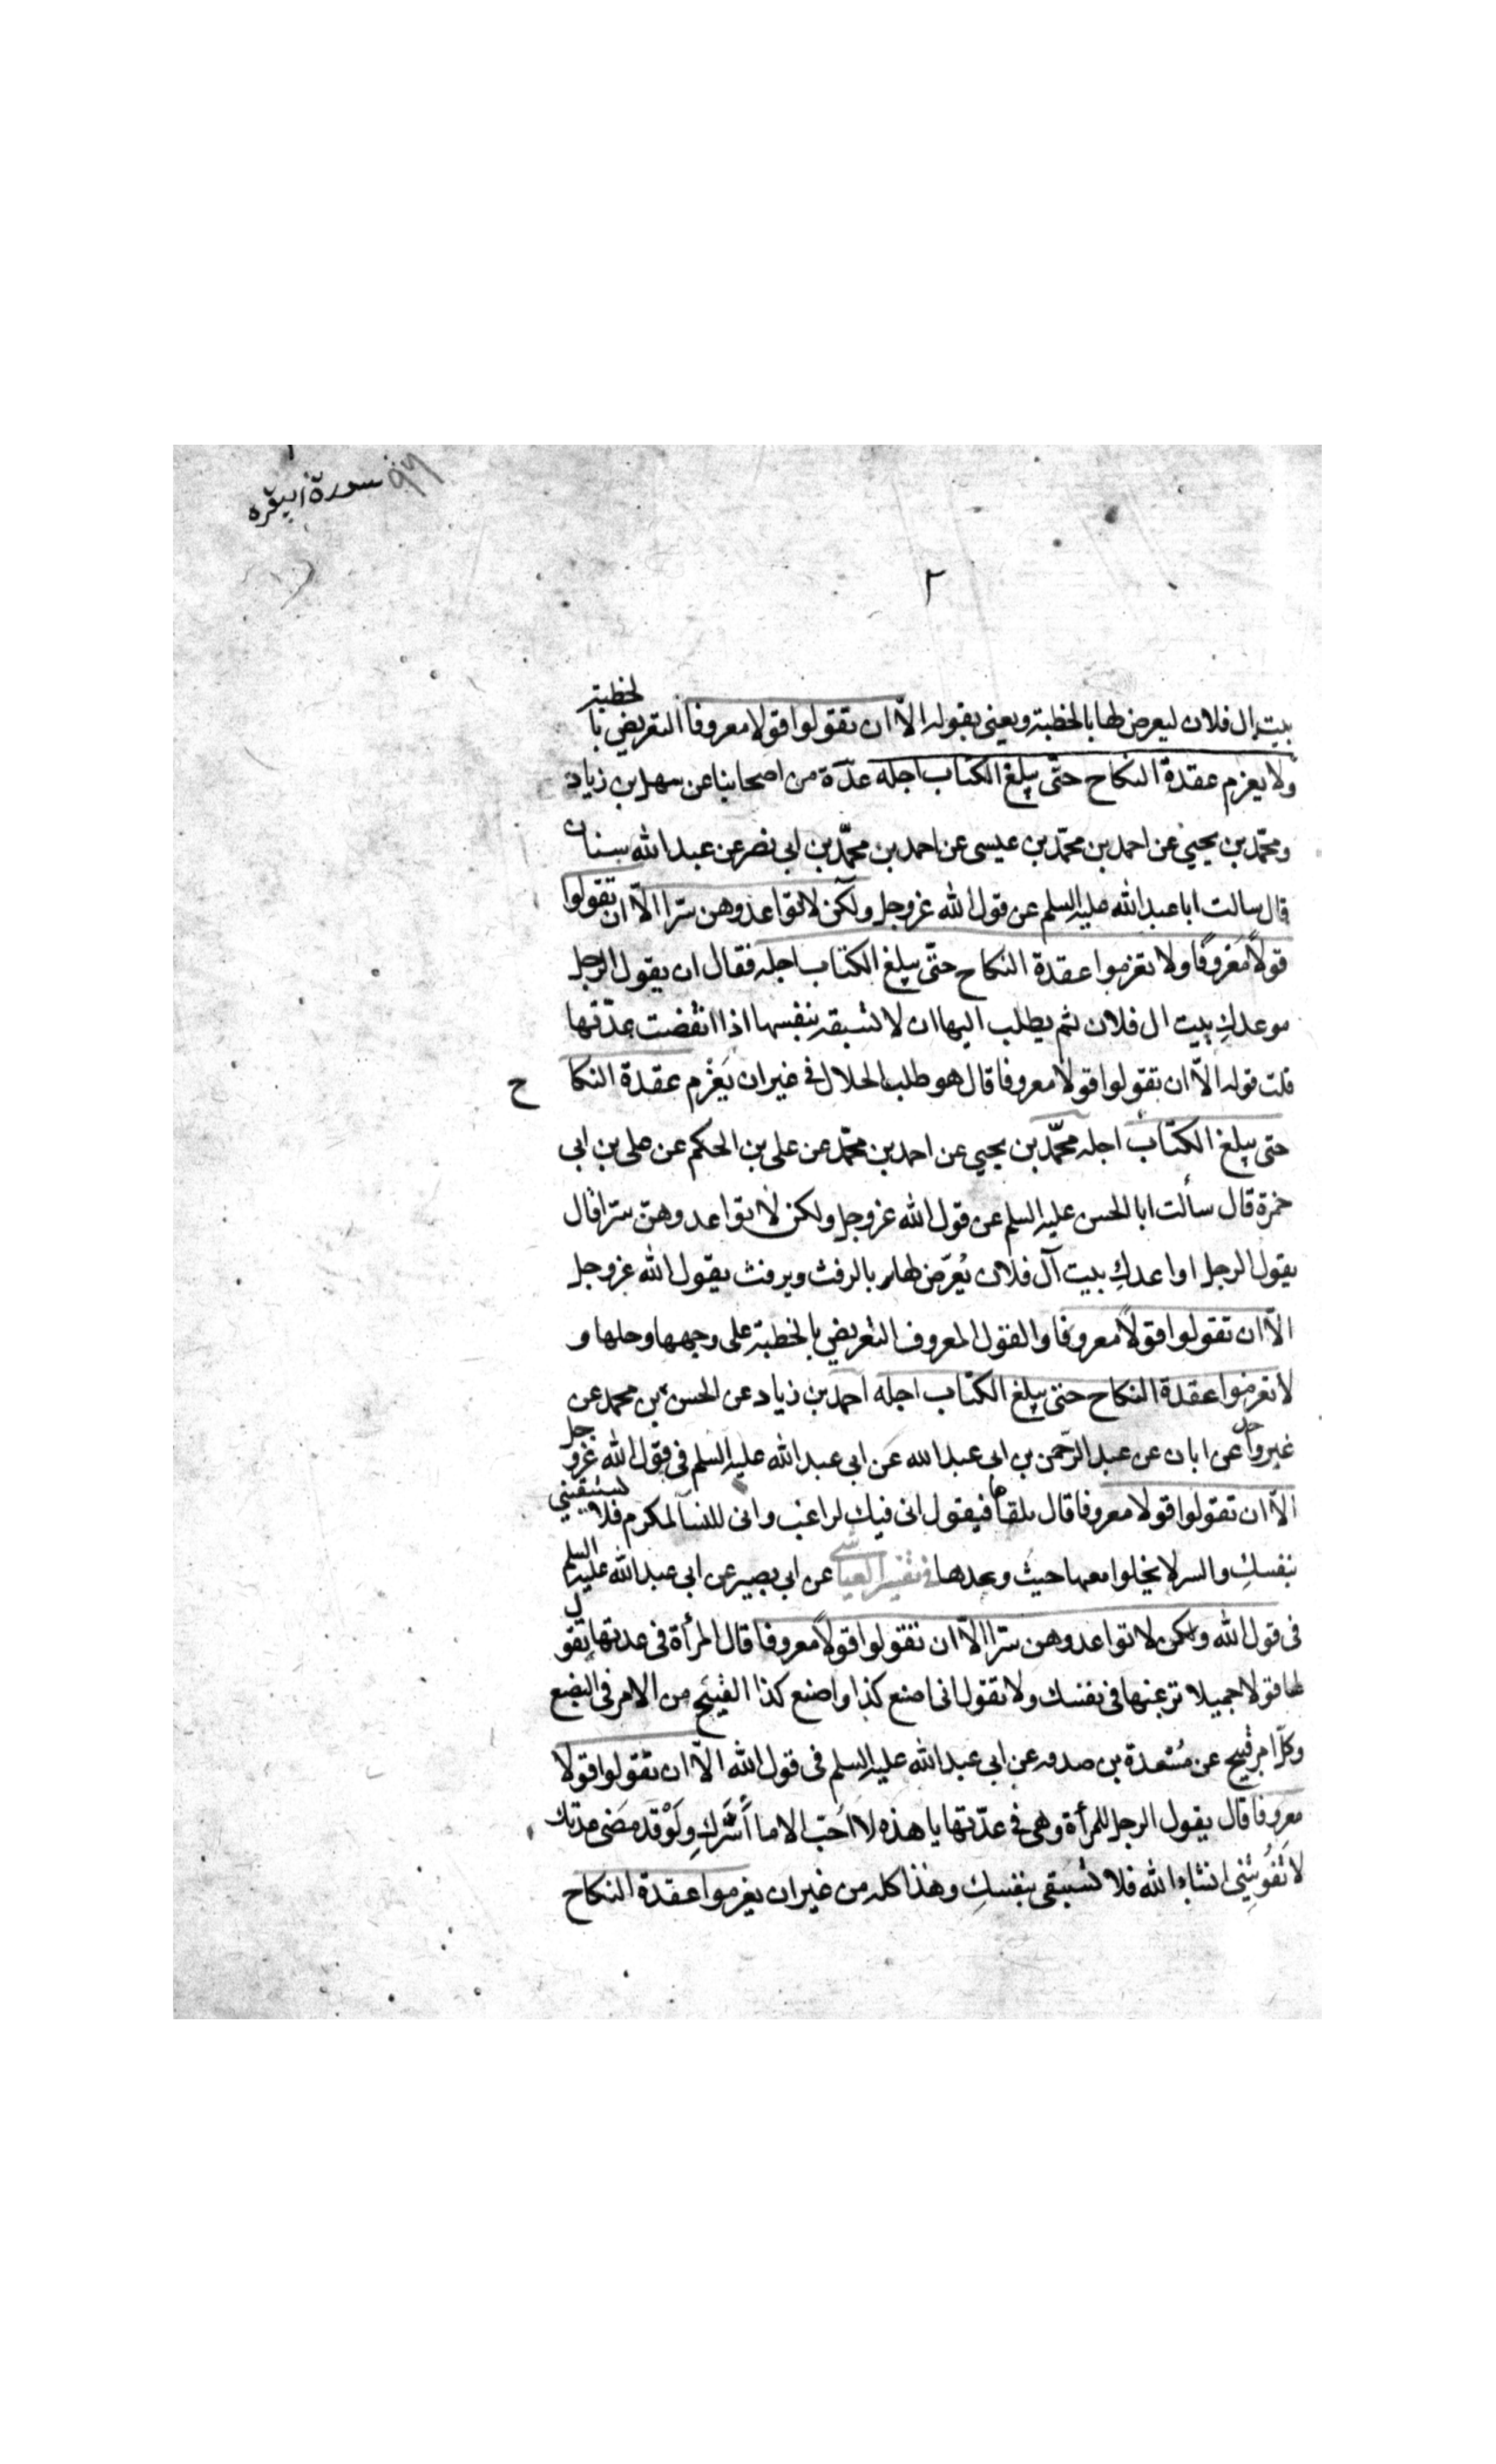 سورة البقره ٩٦
٢
بيت ال فلان ليعرض لها بالخطبة ويعنى بقوله الّا ان تقولوا قولا معروفا التعريض بالخطبة
ولا يعزم عقدة النكاح حتّى يبلغ الكتاب اجله عدّة من اصحابنا عن سهل بن زياد
ومحمّد بن يحيى عن احمد بن محمّد بن عيسى عن احمد بن محمّد بن ابى نصر عن عبد الله سنان
قال سالت ابا عبد الله عليه السلم عن قول الله عزوجل ولكن لا تواعدوهن سرّا الّا ان تقولوا
قولاً مَعْروفًا ولا تعزموا عقدة النكاح حتّى يبلغ الكتاب اجله فقال ان يقول الرجل
موعدكِ بيت ال فلان ثم يطلب اليها ان لا تسبقه بنفسها اذا انقضت عدّتها
قلت قوله الّا ان تقولوا قولا معروفا قال هو طلب الحلال فى غير ان يَعْزِم عقدة النكاح
حتى يبلغ الكتاب اجله محمّد بن يحيى عن احمد بن محمّد عن على بن الحكم عن على بن ابى
حمزة قال سألت ابا الحسن عليه السلم عن قول الله عزوجل ولكن لا تواعدوهنّ سرّا قال
يقول الرجل اواعدكِ بيت آل فلان يُعرّض لها بالرفث ويرفث يقول الله عزوجل
الّا ان تقولوا قولاً معروفًا والقول المعروف التعريض بالخطبة على وجهها وحلها و
لا تعزموا عقدة النكاح حتى يبلغ الكتاب اجله احمد بن زياد عن الحسن بن محمد عن
غير واحد عن ابان عن عبد الرحمن بن ابى عبد الله عن ابى عبد الله عليه السلم فى قول الله عزوجل
الّا ان تقولوا قولا معروفا قال يلقاها فيقول انى فيك لراغب وانى للنسآ لمكرم فلا تسبقينى
بنفسكِ والسر لا يخلوا معها حيث وعدها فى تفسير العياشى عن ابى بصير عن ابى عبد الله عليه السلم
فى قول الله ولكن لا تواعدوهن سرّا الّا ان تقولوا قولاً معروفا قال المرأة فى عدتها تقول
لها قولا جميلا ترغبها فى نفسك ولا تقول انى اصنع كذا واصنع كذا القبيح من الامر فى البضع
وكلّ امر قبيح عن مَسْعدة بن صدقه عن ابى عبد الله عليه السلم فى قول الله الّا ان تقولوا قولا
معروفا قال يقول الرجل للمرأة وهى فى عدّتها يا هذه لا اُحبّ الا ما أسَّركِ ولَوْ قد مَضى عدتك
لا تَفُوتِينى انشاء الله فلا تسبقى بنفسكِ وهذا كله من غير ان يعزموا عقدة النكاح